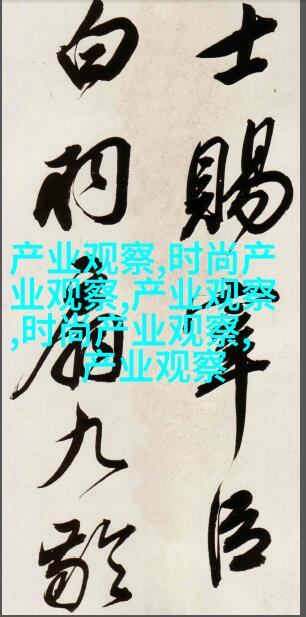 士賜宰臣
白羽扇九齡
产业观察,时尚产
业观察,产业观察
,时尚产业观察,
产业观察